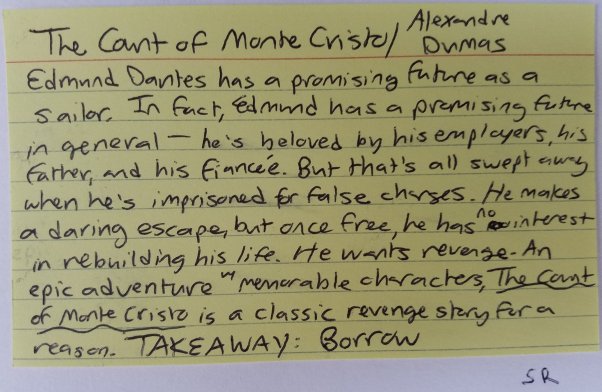 The Count of Monte Cristo/ Alexandre Dumas
Edmund Dantes has a promising future as a
sailor. In fact, Edmund has a promising future
in general — he's beloved by his employers, his
father, and his fiancée. But that's all swept away
when he's imprisoned for false charges. He makes
a daring escape, but once free, he has no interest
in rebuilding his life. He wants revenge. An
epic adventure w/ memorable characters, The Count
of Monte Cristo is a classic revenge story for a
reason. TAKEAWAY: Borrow
SR